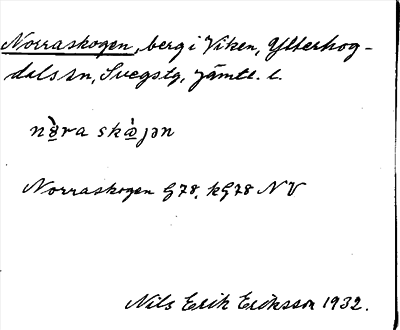 Norraskogen, berg i Viken, Ytterhog-
dals sn, Svegs tg, Jämtl. l.
nò̲ra skæ̲̀jən
Norraskogen G78, kG78 NV
Nils Erik Eriksson 1932.